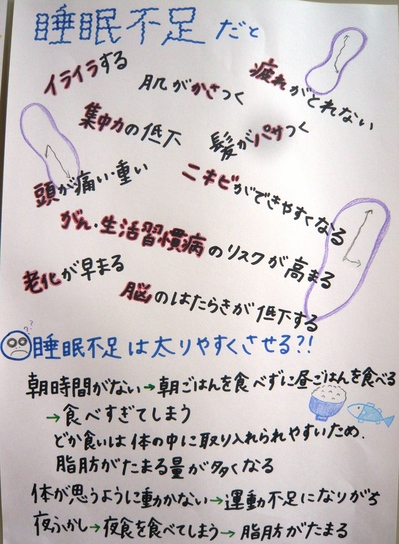 睡眠不足だと
イライラする
肌がかさつく
疲れがとれない
集中力の低下
髪がパサつく
頭が痛い・重い
ニキビができやすくなる
がん・生活習慣病のリスクが高まる
老化が早まる
脳のはたらきが低下する
??
睡眠不足は太りやすくさせる?!
朝時間がない→朝ごはんを食べずに昼ごはんを食べる
→食べすぎてしまう
どか食いは体の中に取り入れられやすいため、
脂肪がたまる量が多くなる
体が思うように動かない→運動不足になりがち
夜ふかし→夜食を食べてしまう→脂肪がたまる